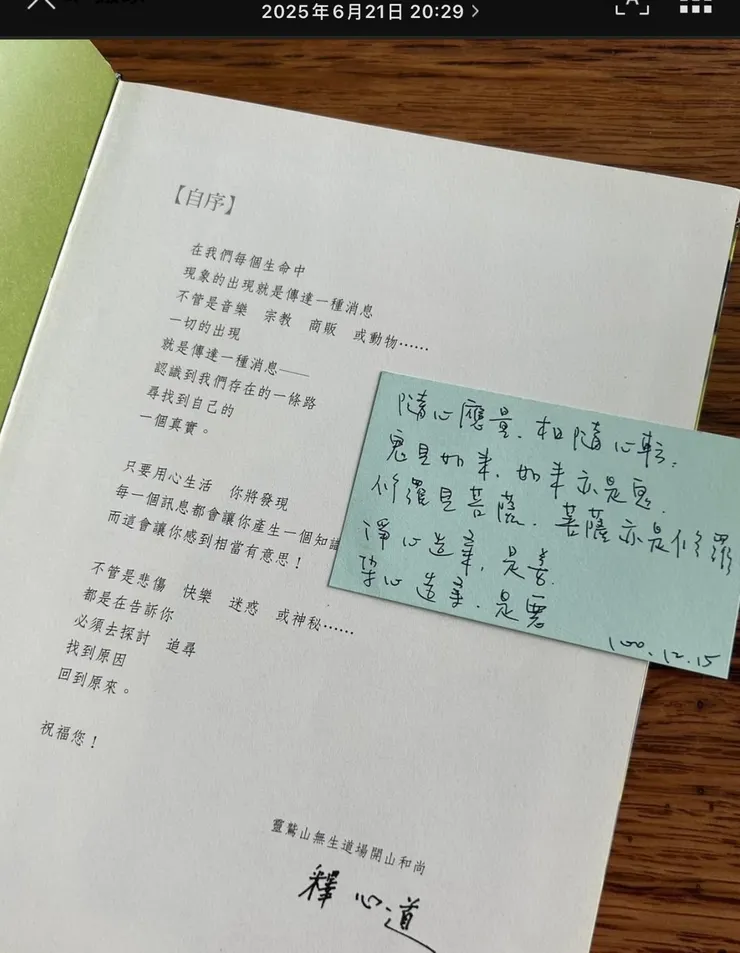 2025年6月21日 20:29
【自序】
在我們每個生命中
現象的出現就是傳達一種消息
不管是音樂　宗教　商販　或動物……
一切的出現
就是傳達一種消息——
認識到我們存在的一條路
尋找到自己的
一個真實。
只要用心生活　你將發現
每一個訊息都會讓你產生一個知識
而這會讓你感到相當有意思！
不管是悲傷　快樂　迷惑　或神秘……
都是在告訴你
必須去探討　追尋
找到原因
回到原來。
祝福您！
靈鷲山無生道場開山和尚
釋心道
隨心應量．相隨心轉．
鬼是如來．如來亦是鬼．
修羅是菩薩．菩薩亦是修羅
淨心造業．是善．
染心造業．是惡
100.12.15